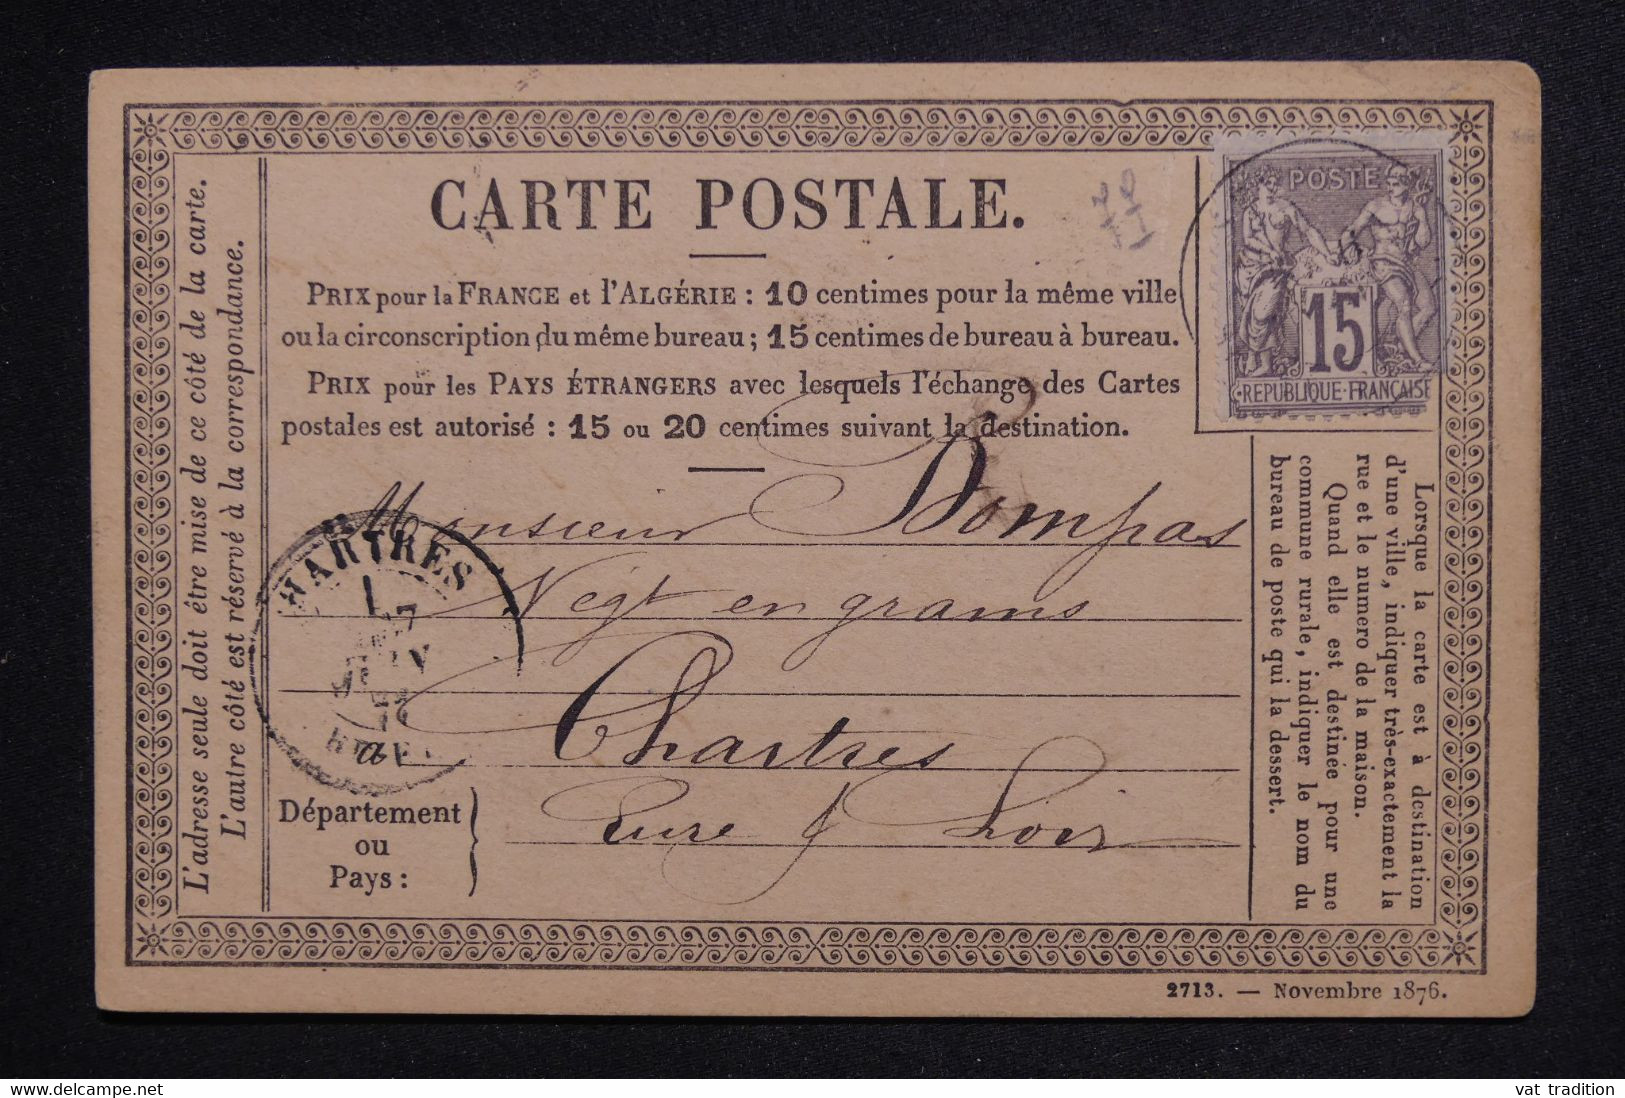 CARTE POSTALE.
PRIX pour la FRANCE et l'ALGÉRIE : 10 centimes pour la même ville
ou la circonscription du même bureau ; 15 centimes de bureau à bureau.
PRIX pour les PAYS ÉTRANGERS avec lesquels l'échange des Cartes
postales est autorisé : 15 ou 20 centimes suivant la destination.
POSTE
15
REPUBLIQUE FRANÇAISE
L'adresse seule doit être mise de ce côté de la carte.
L'autre côté est réservé à la correspondance.
Monsieur Dompas
Négt en grams
Chartres
Eure & Loir
HARTRES
JUIN
Département
ou
Pays :
Lorsque la carte est à destination
d'une ville, indiquer très-exactement la
rue et le numéro de la maison.
Quand elle est destinée pour une
commune rurale, indiquer le nom du
bureau de poste qui la dessert.
2713. — Novembre 1876.
www.delcampe.net
vat tradition